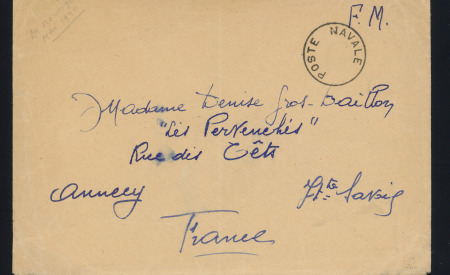 F. M.
POSTE NAVALE
Madame Denise Gros-Daillon
"Les Pervenches"
Rue des Têts
Annecy Hte Savoie
France